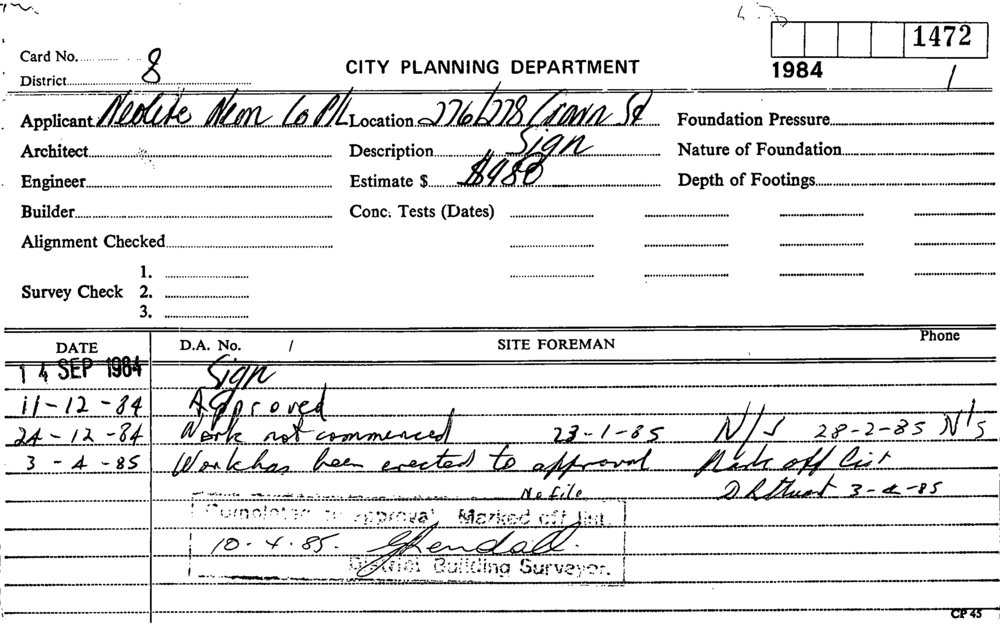 1472
Card No. 8
District
CITY PLANNING DEPARTMENT
1984 /
Applicant Neolite Neon Co P/L Location 276/278 Crown St Foundation Pressure
Architect Description Sign Nature of Foundation
Engineer Estimate $ $980 Depth of Footings
Builder Conc. Tests (Dates)
Alignment Checked
1.
Survey Check 2.
3.
DATE D.A. No. / SITE FOREMAN Phone
14 SEP 1984 Sign
11-12-84 Approved
24-12-84 Work not commenced 23-1-85 N/S 28-2-85 N/S
3-4-85 Work has been erected to approval Mark off list
No file 3-4-85
Completed to approval Marked off list.
10.4.85.
District Building Surveyor.
CP 45